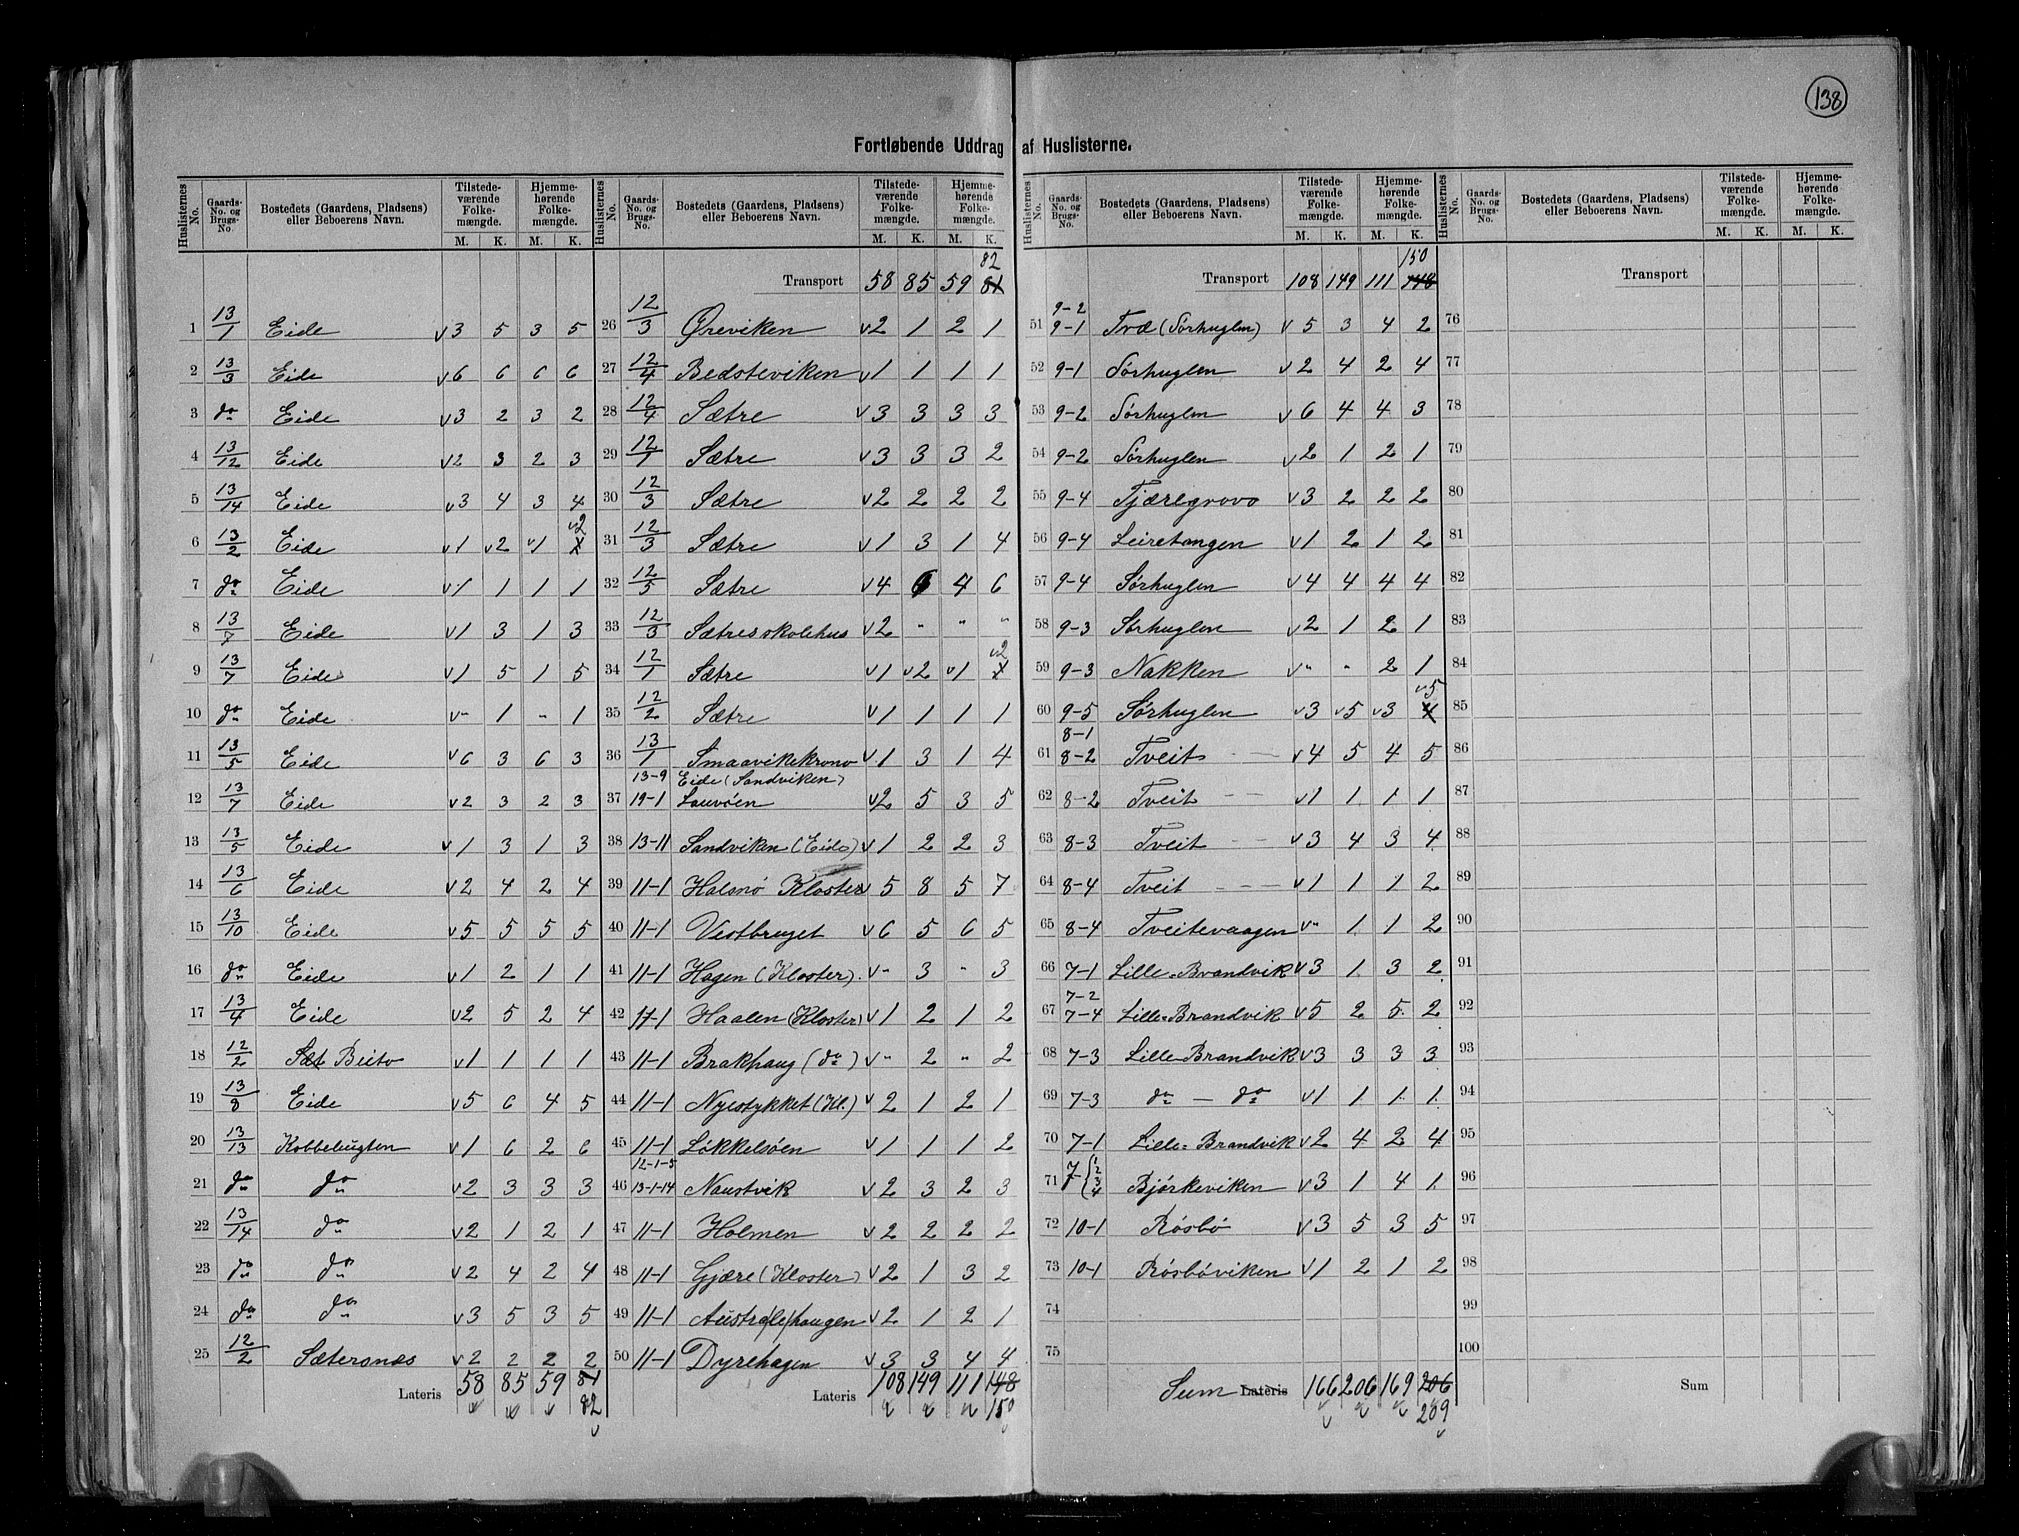 138
Fortløbende Uddrag af Huslisterne.
Huslisternes No. Gaards-No. og Brugs-No. Bostedets (Gaardens, Pladsens) eller Beboerens Navn. Tilstede-værende Folke-mængde. M. K. Hjemme-hørende Folke-mængde. M. K.
1 13/1 Eide v3 5 3 5
2 13/3 Eide v6 6 6 6
3 do Eide v3 2 3 2
4 13/12 Eide v2 3 2 3
5 13/14 Eide v3 4 3 4
6 13/2 Eide v1 v2 v1 v2
7 do Eide v1 1 1 1
8 13/7 Eide v1 3 1 3
9 13/7 Eide v1 5 1 5
10 do Eide v- 1 - 1
11 13/5 Eide v6 3 6 3
12 13/7 Eide v2 3 2 3
13 13/5 Eide v1 3 1 3
14 13/6 Eide v2 4 2 4
15 13/10 Eide v5 5 5 5
16 do Eide v1 2 1 1
17 13/4 Eide v2 5 2 4
18 12/2 Sæt Beito v1 1 1 1
19 13/8 Eide v5 6 4 5
20 13/13 Kobbebugten v1 6 2 6
21 do do v2 3 3 3
22 13/14 do v2 1 2 1
23 do do v2 4 2 4
24 do do v3 5 3 5
25 12/2 Sætersnæs v2 2 2 2
Lateris 58 85 59 81
82
Huslisternes No. Gaards-No. og Brugs-No. Bostedets (Gaardens, Pladsens) eller Beboerens Navn. Tilstede-værende Folke-mængde. M. K. Hjemme-hørende Folke-mængde. M. K.
82
Transport 58 85 59 81
26 12/3 Øreviken v2 1 2 1
27 12/4 Bedsteviken v1 1 1 1
28 12/4 Sætre v3 3 3 3
29 12/1 Sætre v3 3 3 2
30 12/3 Sætre v2 2 2 2
31 12/3 Sætre v1 3 1 4
32 12/5 Sætre v4 6 4 6
33 12/3 Sætresskolehus v2 " " "
34 12/1 Sætre v1 v2 v1 v2
35 12/2 Sætre v1 1 1 1
36 13/1 Smaavikekrono v1 3 1 4
13-9 Eide (Sandviken)
37 19-1 Lauvøen v2 5 3 5
38 13-11 Sandviken (Eide) v1 2 2 3
39 11-1 Halsnø Kloster v5 8 5 7
40 11-1 Vestbruget v6 5 6 5
41 11-1 Hagen (Kloster). v" 3 " 3
42 11-1 Haalen (Kloster) v1 2 1 2
43 11-1 Brakhaug (do) v" 2 " 2
44 11-1 Nyestykket (Kl.) v2 1 2 1
45 11-1 Løkkelsøen v1 1 1 2
12-1-5
46 13-1-14 Naustvik v2 3 2 3
47 11-1 Holmen v2 2 2 2
48 11-1 Gjære (Kloster) v2 1 3 2
49 11-1 Austra(le)haugen v2 1 2 1
50 11-1 Dyrehagen v3 3 4 4
Lateris 108 149 111 148
150
Huslisternes No. Gaards-No. og Brugs-No. Bostedets (Gaardens, Pladsens) eller Beboerens Navn. Tilstede-værende Folke-mængde. M. K. Hjemme-hørende Folke-mængde. M. K.
150
Transport 108 149 111 148
9-2
51 9-1 Træ (Sørhuglen) v5 3 4 2
52 9-1 Sørhuglen v2 4 2 4
53 9-2 Sørhuglen v6 4 4 3
54 9-2 Sørhuglen v2 1 2 1
55 9-4 Tjæregrovo v3 2 2 2
56 9-4 Leiretangen v1 2 1 2
57 9-4 Sørhuglen v4 4 4 4
58 9-3 Sørhuglen v2 1 2 1
59 9-3 Nakken v" " 2 1
60 9-5 Sørhuglen v3 v5 v3 v5
8-1
61 8-2 Tveit v4 5 4 5
62 8-2 Tveit v1 1 1 1
63 8-3 Tveit v3 4 3 4
64 8-4 Tveit v1 1 1 2
65 8-4 Tveitevaagen v" 1 1 2
66 7-1 Lille-Brandvik v3 1 3 2
7-2
67 7-4 Lille-Brandvik v5 2 5 2
68 7-3 Lille-Brandvik v3 3 3 3
69 7-3 do - do v1 1 1 1
70 7-1 Lille-Brandvik v2 4 2 4
71 7-{1 2 3 4 Bjørkeviken v3 1 4 1
72 10-1 Røsbø v3 5 3 5
73 10-1 Røsbøviken v1 2 1 2
74
75
Sum Lateris 166 206 169 206
209
Huslisternes No. Gaards-No. og Brugs-No. Bostedets (Gaardens, Pladsens) eller Beboerens Navn. Tilstede-værende Folke-mængde. M. K. Hjemme-hørende Folke-mængde. M. K.
Transport
76
77
78
79
80
81
82
83
84
85
86
87
88
89
90
91
92
93
94
95
96
97
98
99
100
Sum